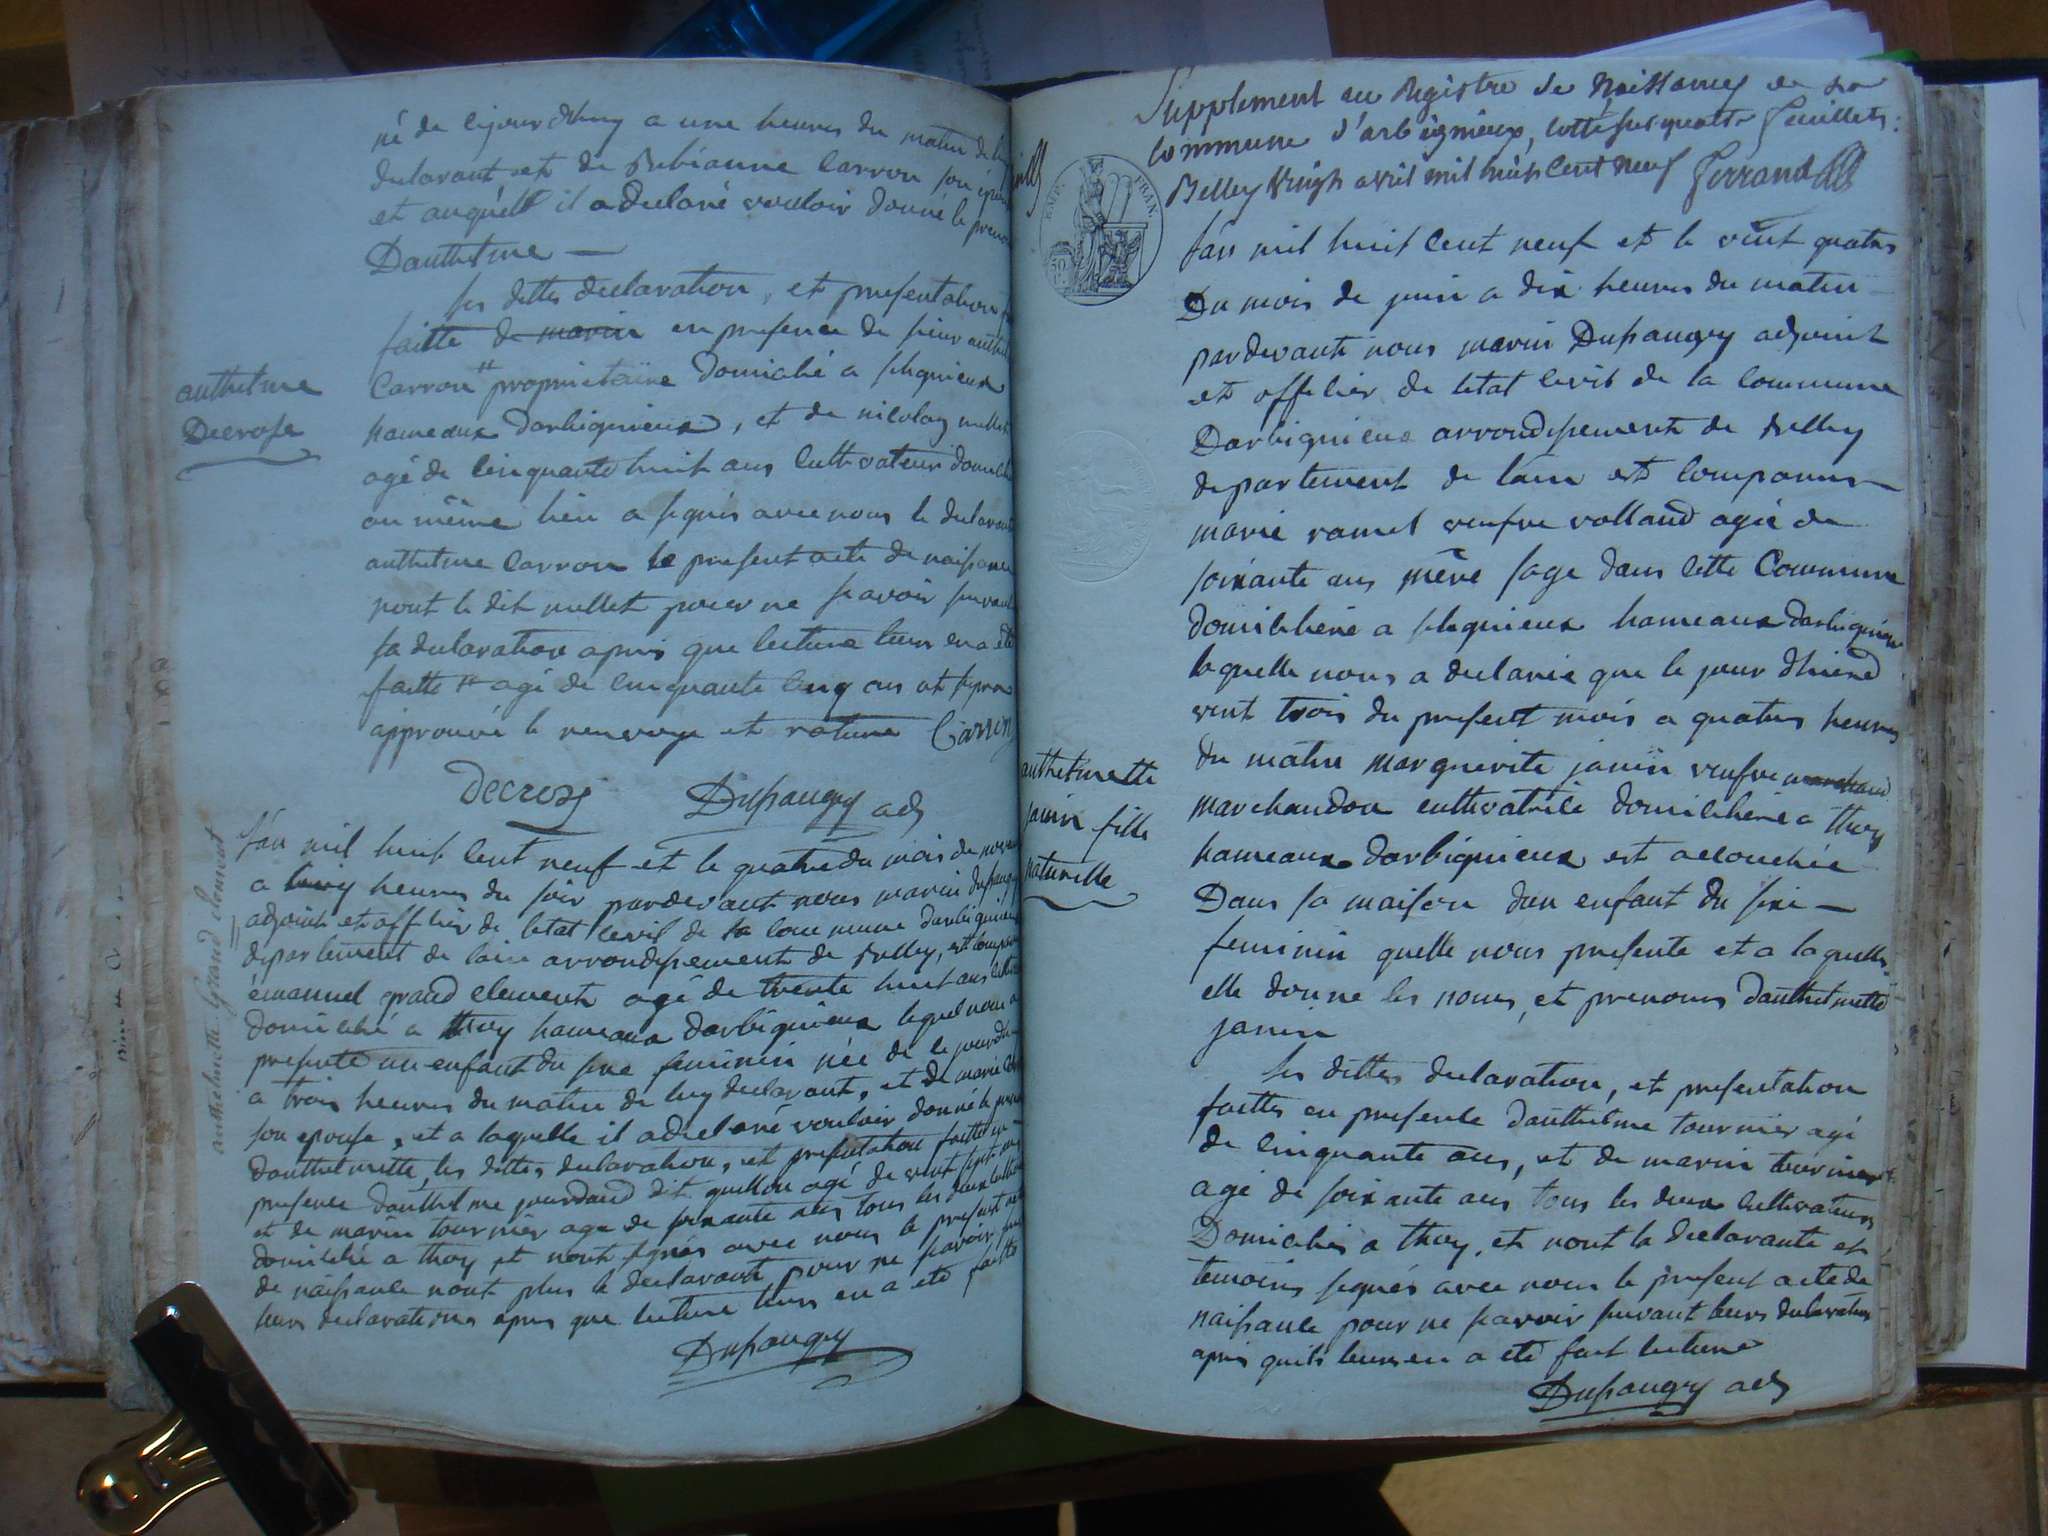 né de cejourdhuy a une heures du matin de luy
declarant et de Bibianne Carron son épouse
et auquelle il a declaré vouloir donné le prenom
Danthelme —
les dittes declaration, et presentation
faitte de marin en presence de sieur anthelme
Carron # propriétaire domicilié a slignieux
hameaux darbignieux, et de nicolas mellet
agé de cinquante huit ans cultivateur domicilié
au même lieu a signés avec nous le declarant
anthelme Carron le present acte de naissance
nont le dit mellet pour ne savoir suivant
sa declaration apris que lecture leurs en a été
faitte # agé de cinquante cinq ans et
approuvé le renvoye et rature Carron
Decrose Dupaugey adj
anthelme
Decrose
anthelmette grand clement
lan mil huit cent neuf et le quatre du mois de
a heures du soir pardevant nous marin dupaugey
adjoint et officier de letat civil de la commune darbignieux
departement de lain arrondissement de Belley, est comparu
émanuel grand clement agé de trente huit ans
domicilié a thoy hameaux darbignieux lequel nous a
presenté un enfant du sexe feminin née de ce jourdhuy
a trois heures du matin de luy declarant, et de marie
son epouse, et a laquelle il a declaré vouloir donné le prenom
danthelmette, les dittes declaration, et presentation faitte en
presence danthelme jourdand dit guillou agé de vint sept ans
et de marin tournier age de soixante ans tous les deux
domicilié a thoy et nont signés avec nous le present acte
de naissance nont plus le declarant, pour ne savoir
leurs declarations apris que lecture leurs en a été faitte
Dupaugey
Supplement au Registre de Naissances de la
commune d'arbignieux, cotté sur quatre feuillets:
Belley vingt avril mil huit cent neuf Ferrand
EMP. FRAN.
lan mil huit cent neuf et le vint quatre
Du mois de juin a dix heures du matin
pardevant nous marin Dupaugey adjoint
et officier de letat civil de la commune
Darbignieux arrondissement de Belley
departement de lain est comparus
marie ramel veufve rolland agée de
soixante ans mère sage dans cette Commune
domicilieiré a slignieux hameaux darbignieux
laquelle nous a declarée que le jour dhiere
vint trois du present mois a quatres heures
du matin marguerite janin veufve marchand
marchandon cultivatrice domicilieiré a thoy
hameaux darbignieux est accouchée
Dans sa maison dun enfant du sexe —
feminin quelle nous presente et a laquelle
elle donne les noms, et prenoms danthelmette
janin
les dittes declaration, et presentation
faittes en presence danthelme tournier agé
de cinquante ans, et de marin tournier
agé de soixante ans tous les deux cultivateurs
Domiciliés a thoy, et nont la declarante et
temoins signés avec nous le present acte de
naissance pour ne savoir suivant leurs declaration
apris quils leurs en a été fait lecture
Dupaugey adj
anthelmette
janin fille
naturelle